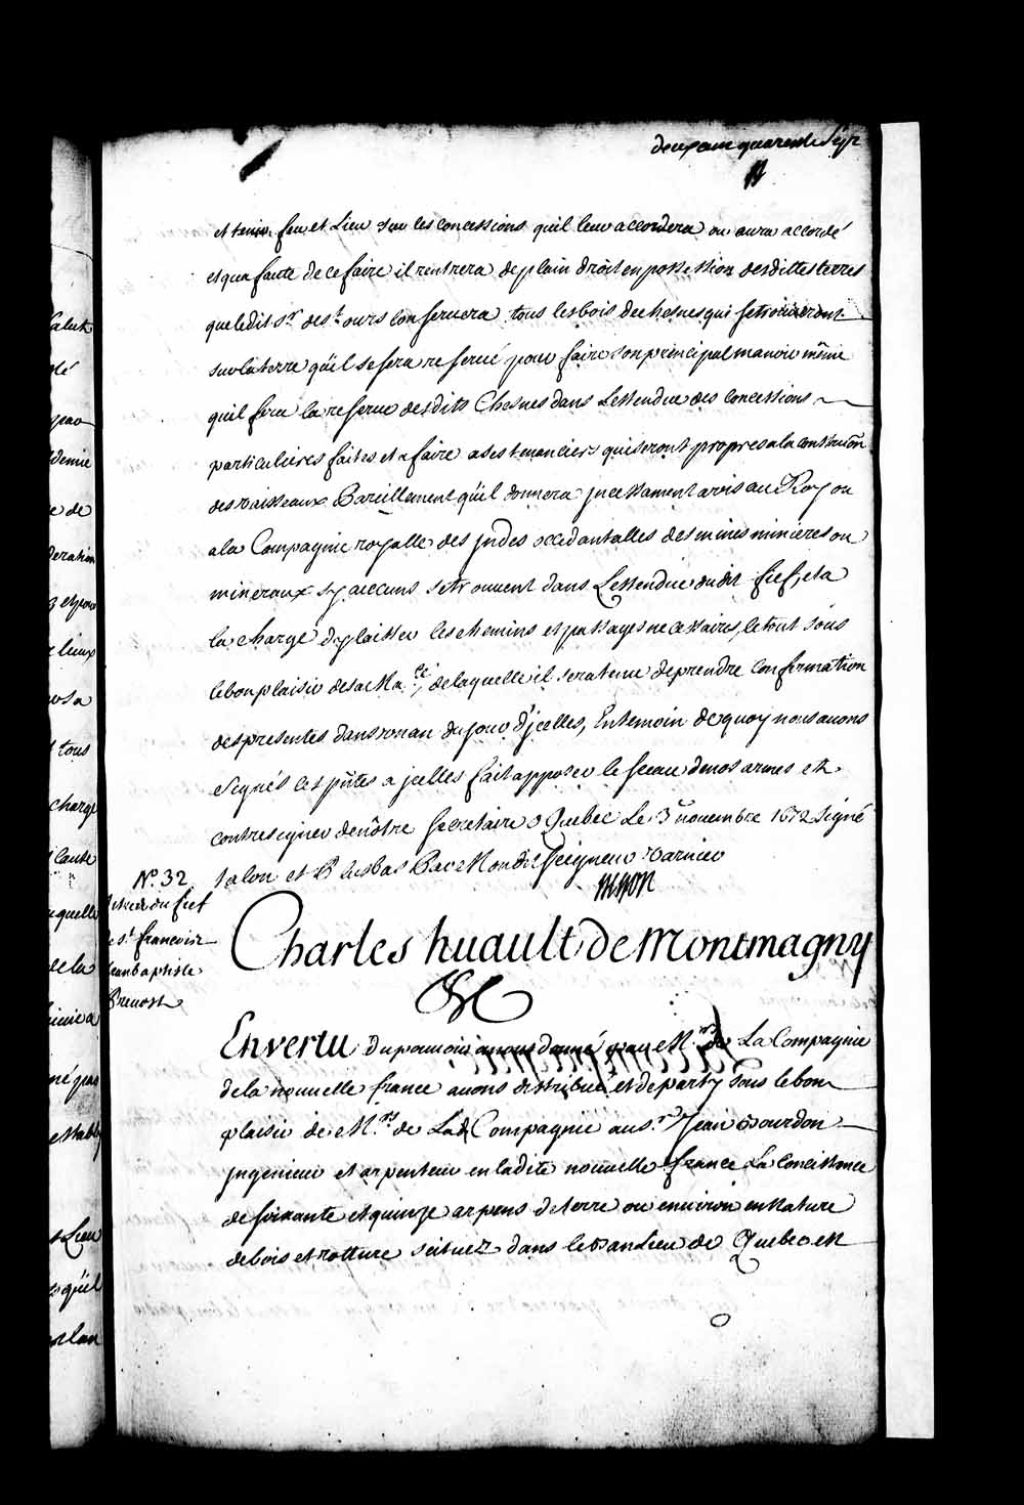 deux cent quarente Sept
et tenir feu et Lieu sur les concessions quil leur accordera ou aura accordé
et qua faute de ce faire il rentrera de plain droit en possession desdittes terres
que ledit Sr. de St. ours Conservera tous les bois de chesnes qui se trouveront
sur la terre qüil se sera reservé pour faire son principal manoir même
quil fera la reserve desdits Chesnes dans Lestendue des concessions
particulieres faites et a faire a ses tenanciers qui seront propres a la construcõn
des vaisseaux Pareillement qüil donnera jncessament avis au Roy ou
a la Compagnie royalle des jndes occidantalles des mines minieres ou
mineraux sy aucuns se trouvent dans Lestendue dudit fief, et a
la charge dy laisser les chemins et passages necessaires, le tout sous
le bon plaisir de sa Ma.té, de laquelle il sera tenu de prendre Confirmation
des presentes dans un an du jour d'jcelles, En temoin de quoy nous avons
Signés ces pñtes a jcelles fait apposer le sceau de nos armes et
contresigner de nôtre Secretaire a Quebec Le 3e novembre 1672 Signé
Talon et Plus bas Par Mondit Seigneur Varnier
No. 32
du fief
St. francois
Jean baptiste
Prevost
Charles huault de Montmagny
&c
En vertu du pouvoir a nous donné par Mrs. de La Compagnie
de la nouvelle france avons distribué et departy sous le bon
plaisir de Mrs. de Lad. Compagnie au Sr. Jean Bourdon
jngenieur et arpenteur en ladite nouvelle france La Concistance
de soixante et quinze arpens de terre ou environ en Nature
de bois et rotture scituez dans le banLieu de Quebec et